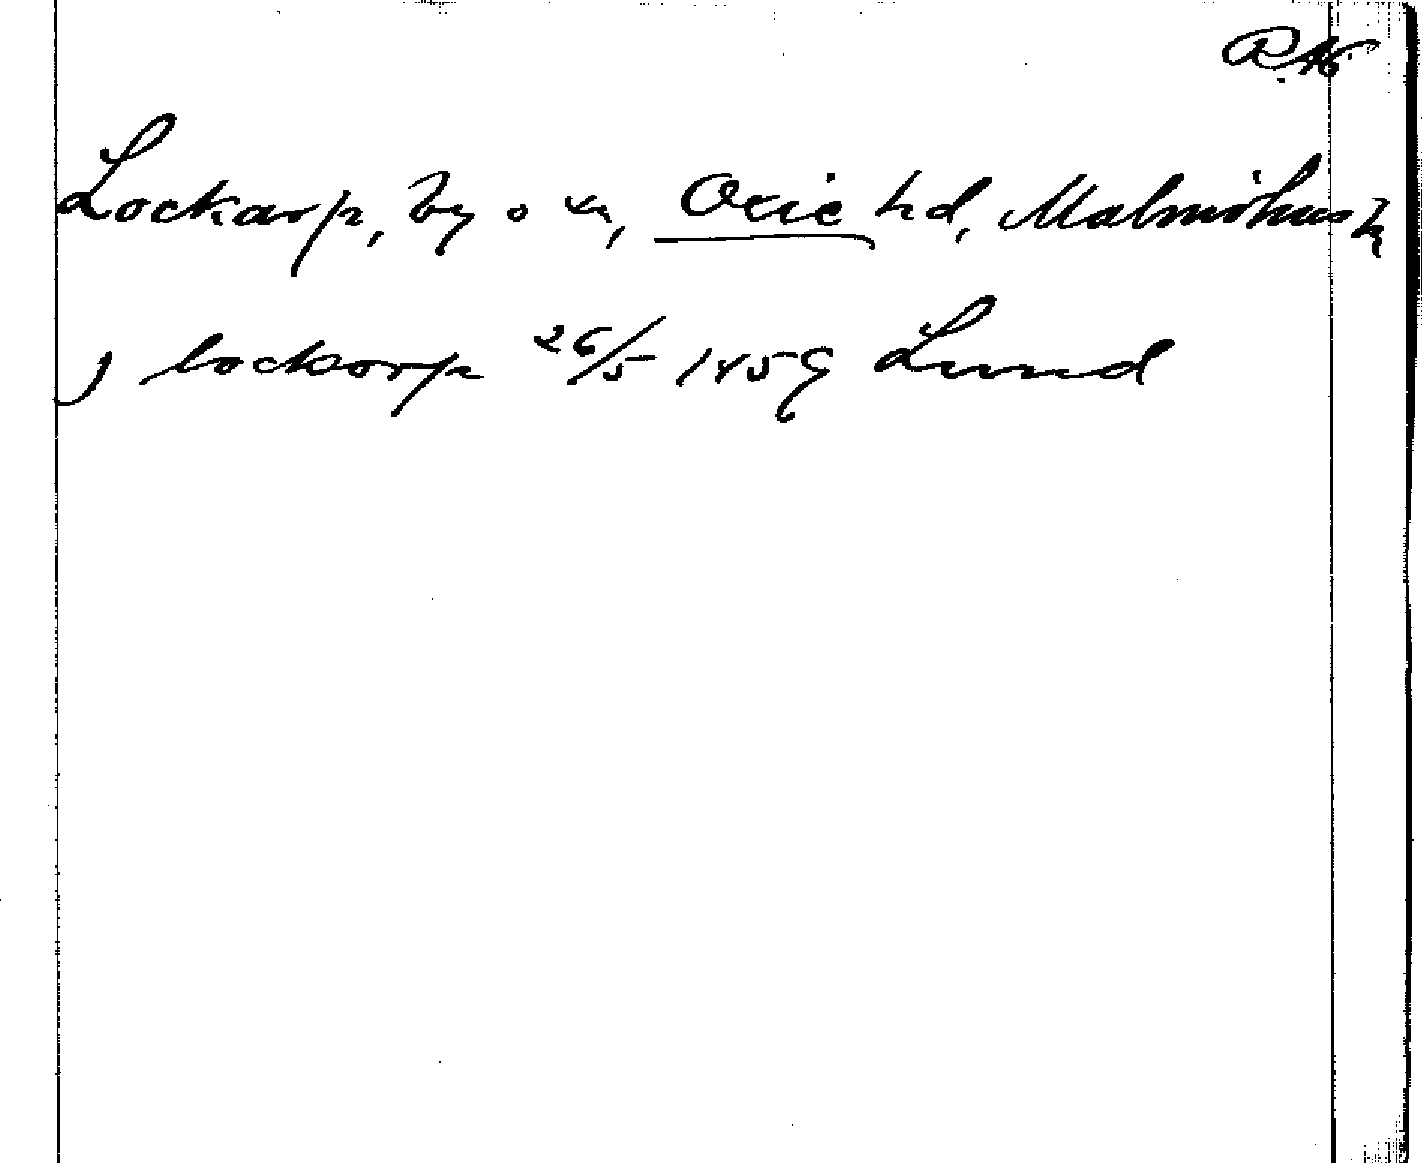 R.Ap.
Lockarp, by o sn, Oxie hd, Malmöhus l.
J lockorp 26/5 1459 Lund